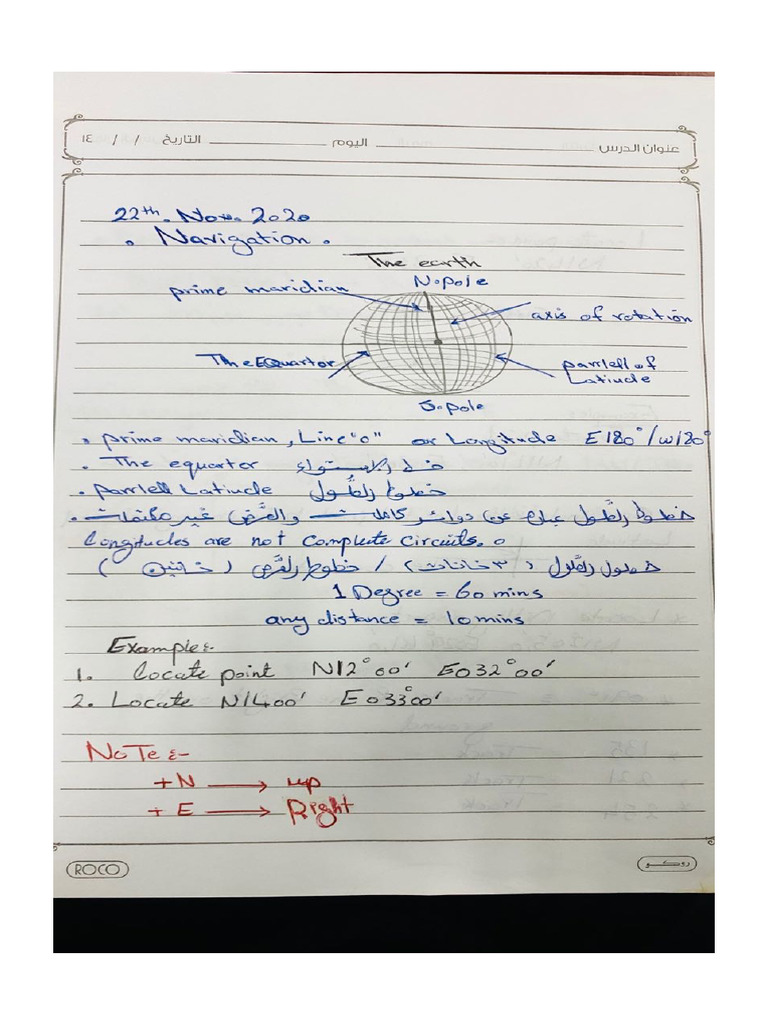 عنوان الدرس اليوم التاريخ / / ١٤
22th. Nov. 2020
. Navigation .
The earth
N.pole
prime maridian
axis of rotation
The EQuartor
parrlell of
Latiude
S.pole
. prime maridian, Line "0" or Longitude E180°/W180°
. The equartor خط الاستواء
. parrlell Latiude خطوط الطُّول
. خطوط الطُّول عبارة عن دوائر كاملات والعَرض غير مكتملات
Longitudes are not complete circuits.
خطول الطُّول (٣ خانات) / خطوط العَرض (خانتين)
1 Degree = 60 mins
any distance = 10 mins
Example:
1. Locate point N12°00' E032°00'
2. Locate N1400' E033°00'
NoTe :-
+ N → up
+ E → Right
ROCO روكو